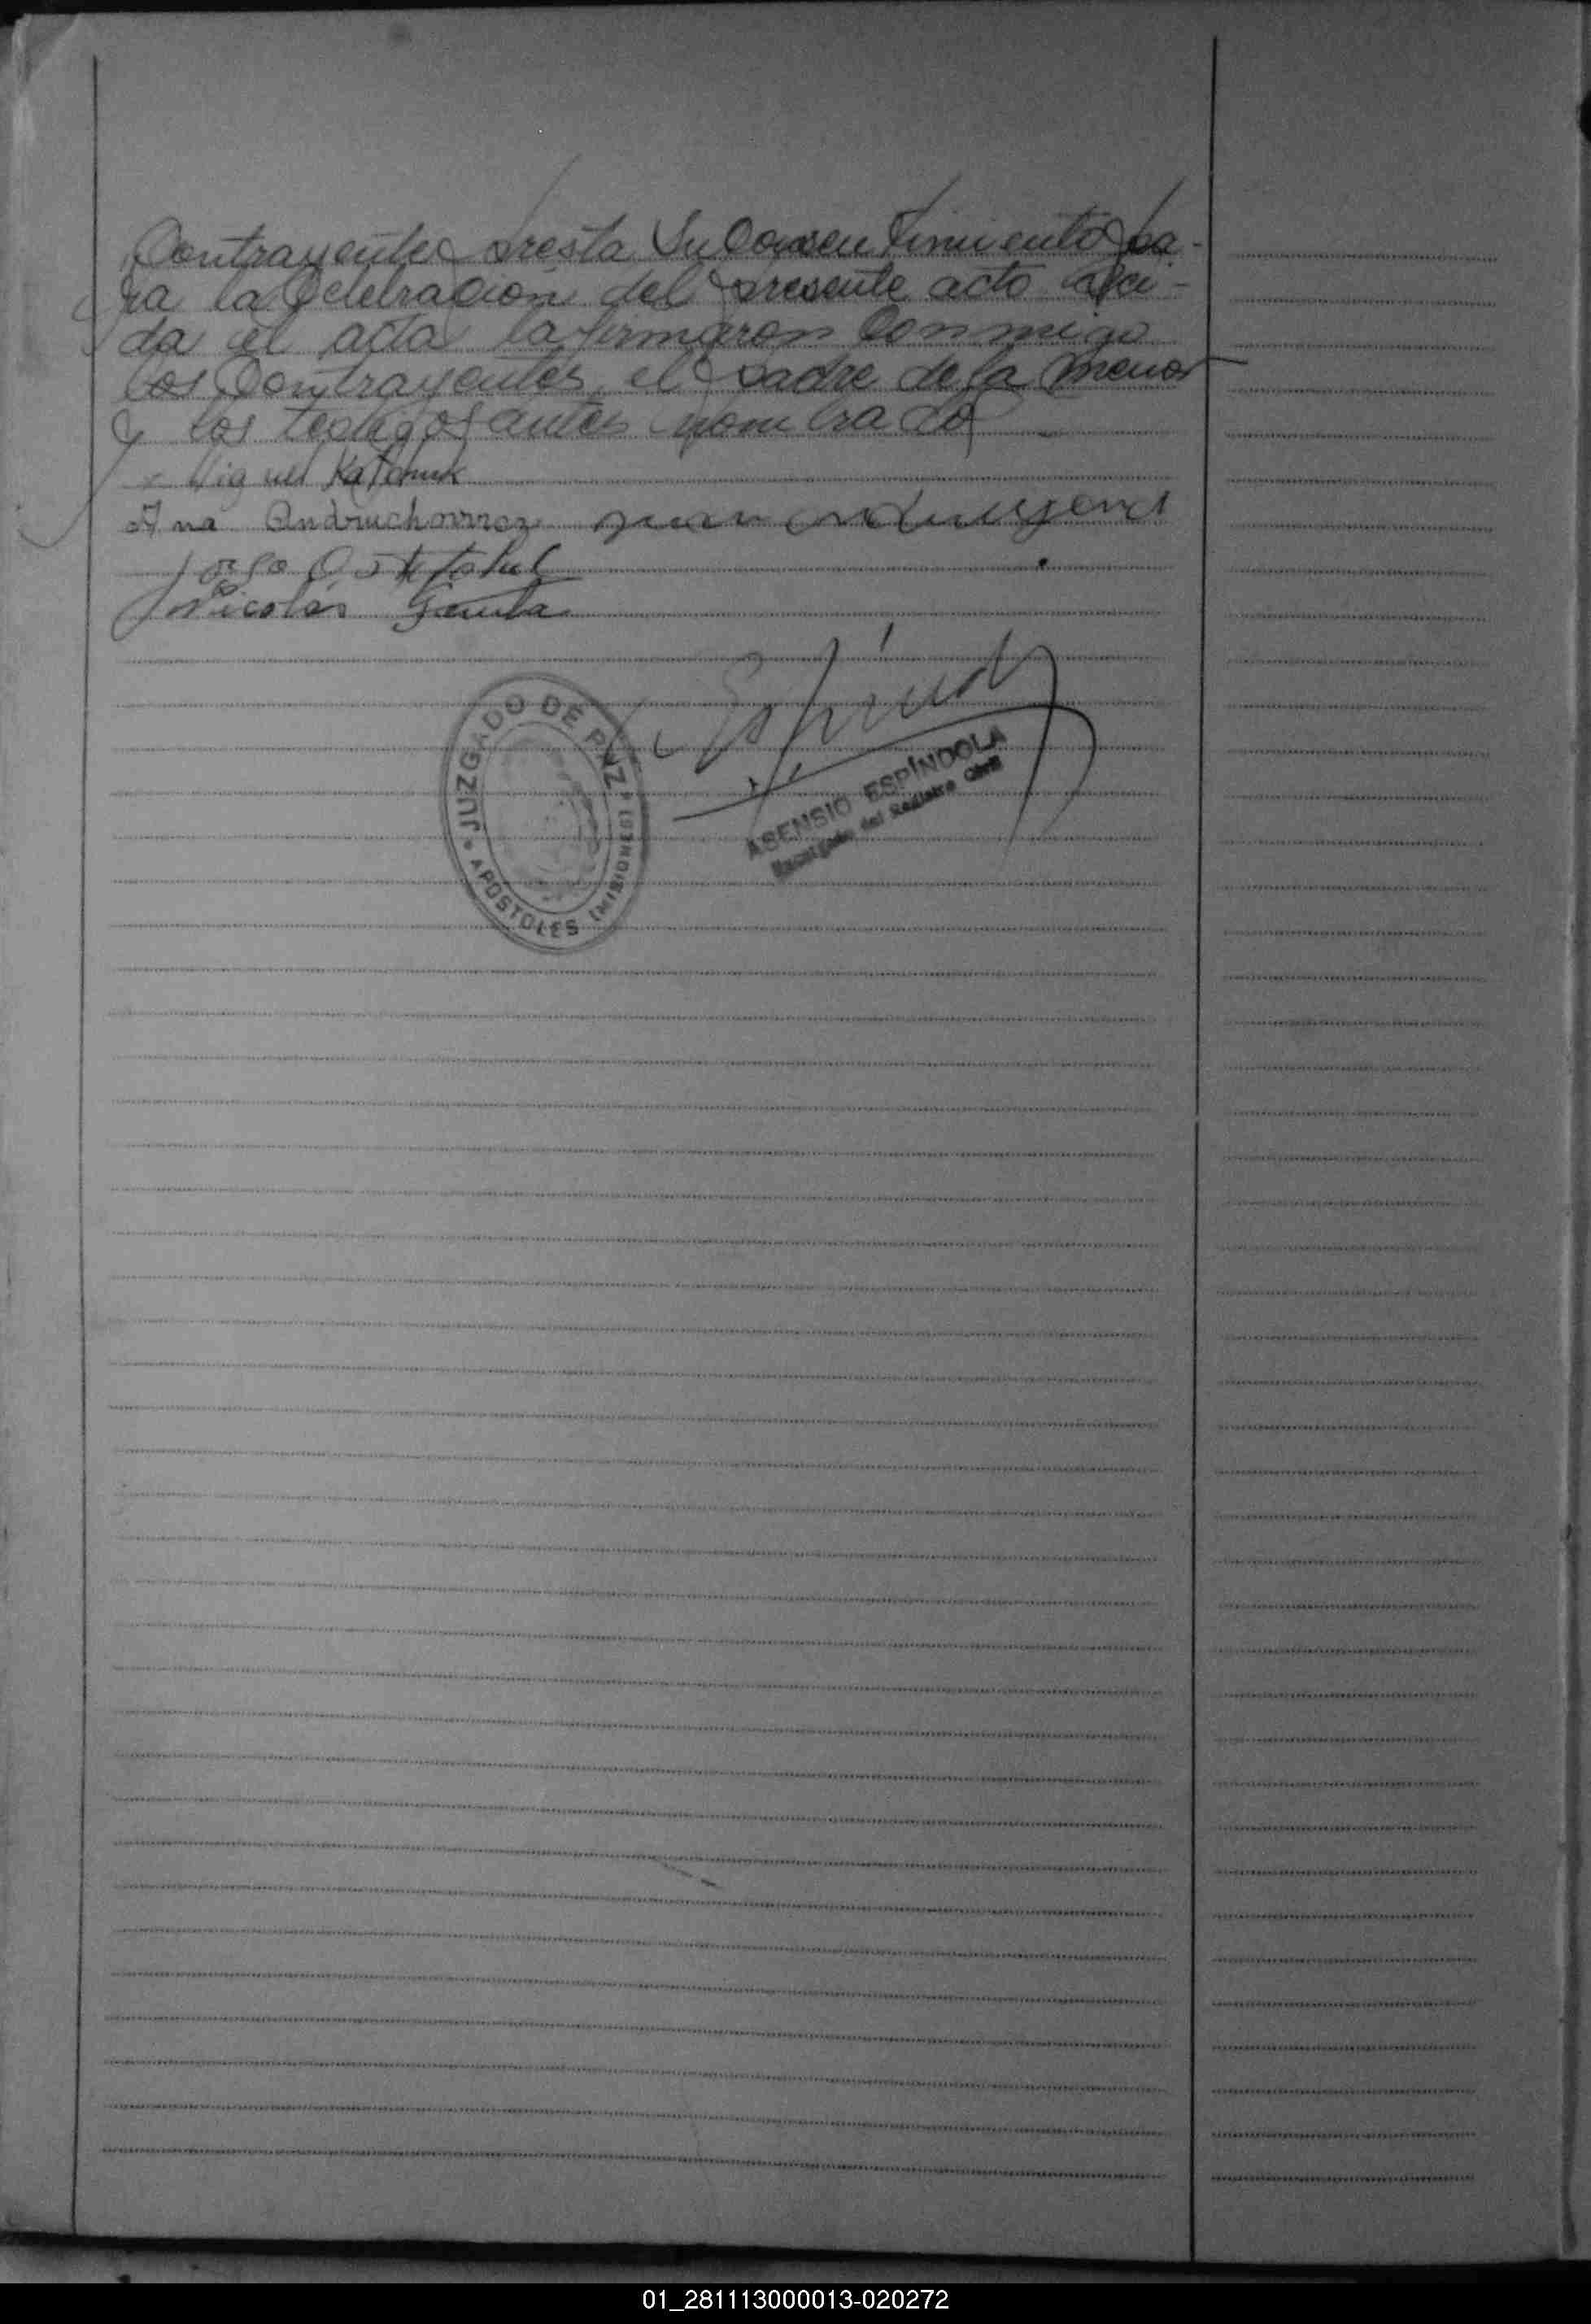 Contrayentes presta Su Consentimiento pa-
ra la Celebracion del presente acto Leci-
da el acta la firmaron Conmigo
los Contrayentes, el padre de la menor
y los testigos antes nombrado
Miguel Katchuk
Ana Andruchowicz
Nicolás
JUZGADO DE PAZ
APÓSTOLES (MISIONES)
ASENSIO ESPÍNDOLA
Encargado del Registro Civil
01_281113000013-020272